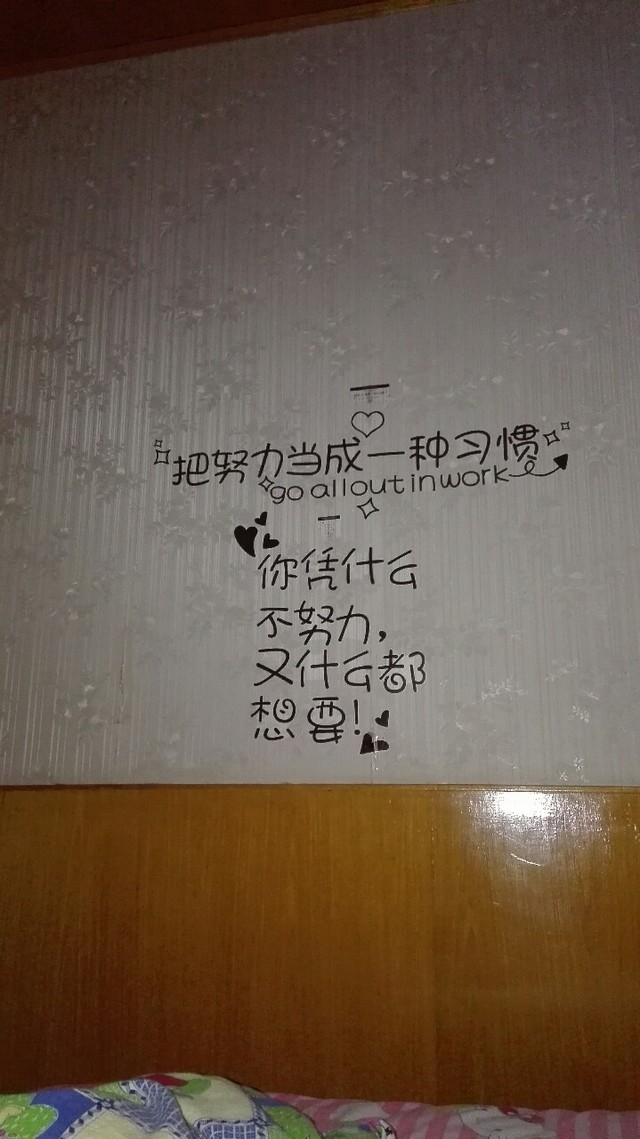 把努力当成一种习惯
go all out in work
你凭什么
不努力，
又什么都
想要！